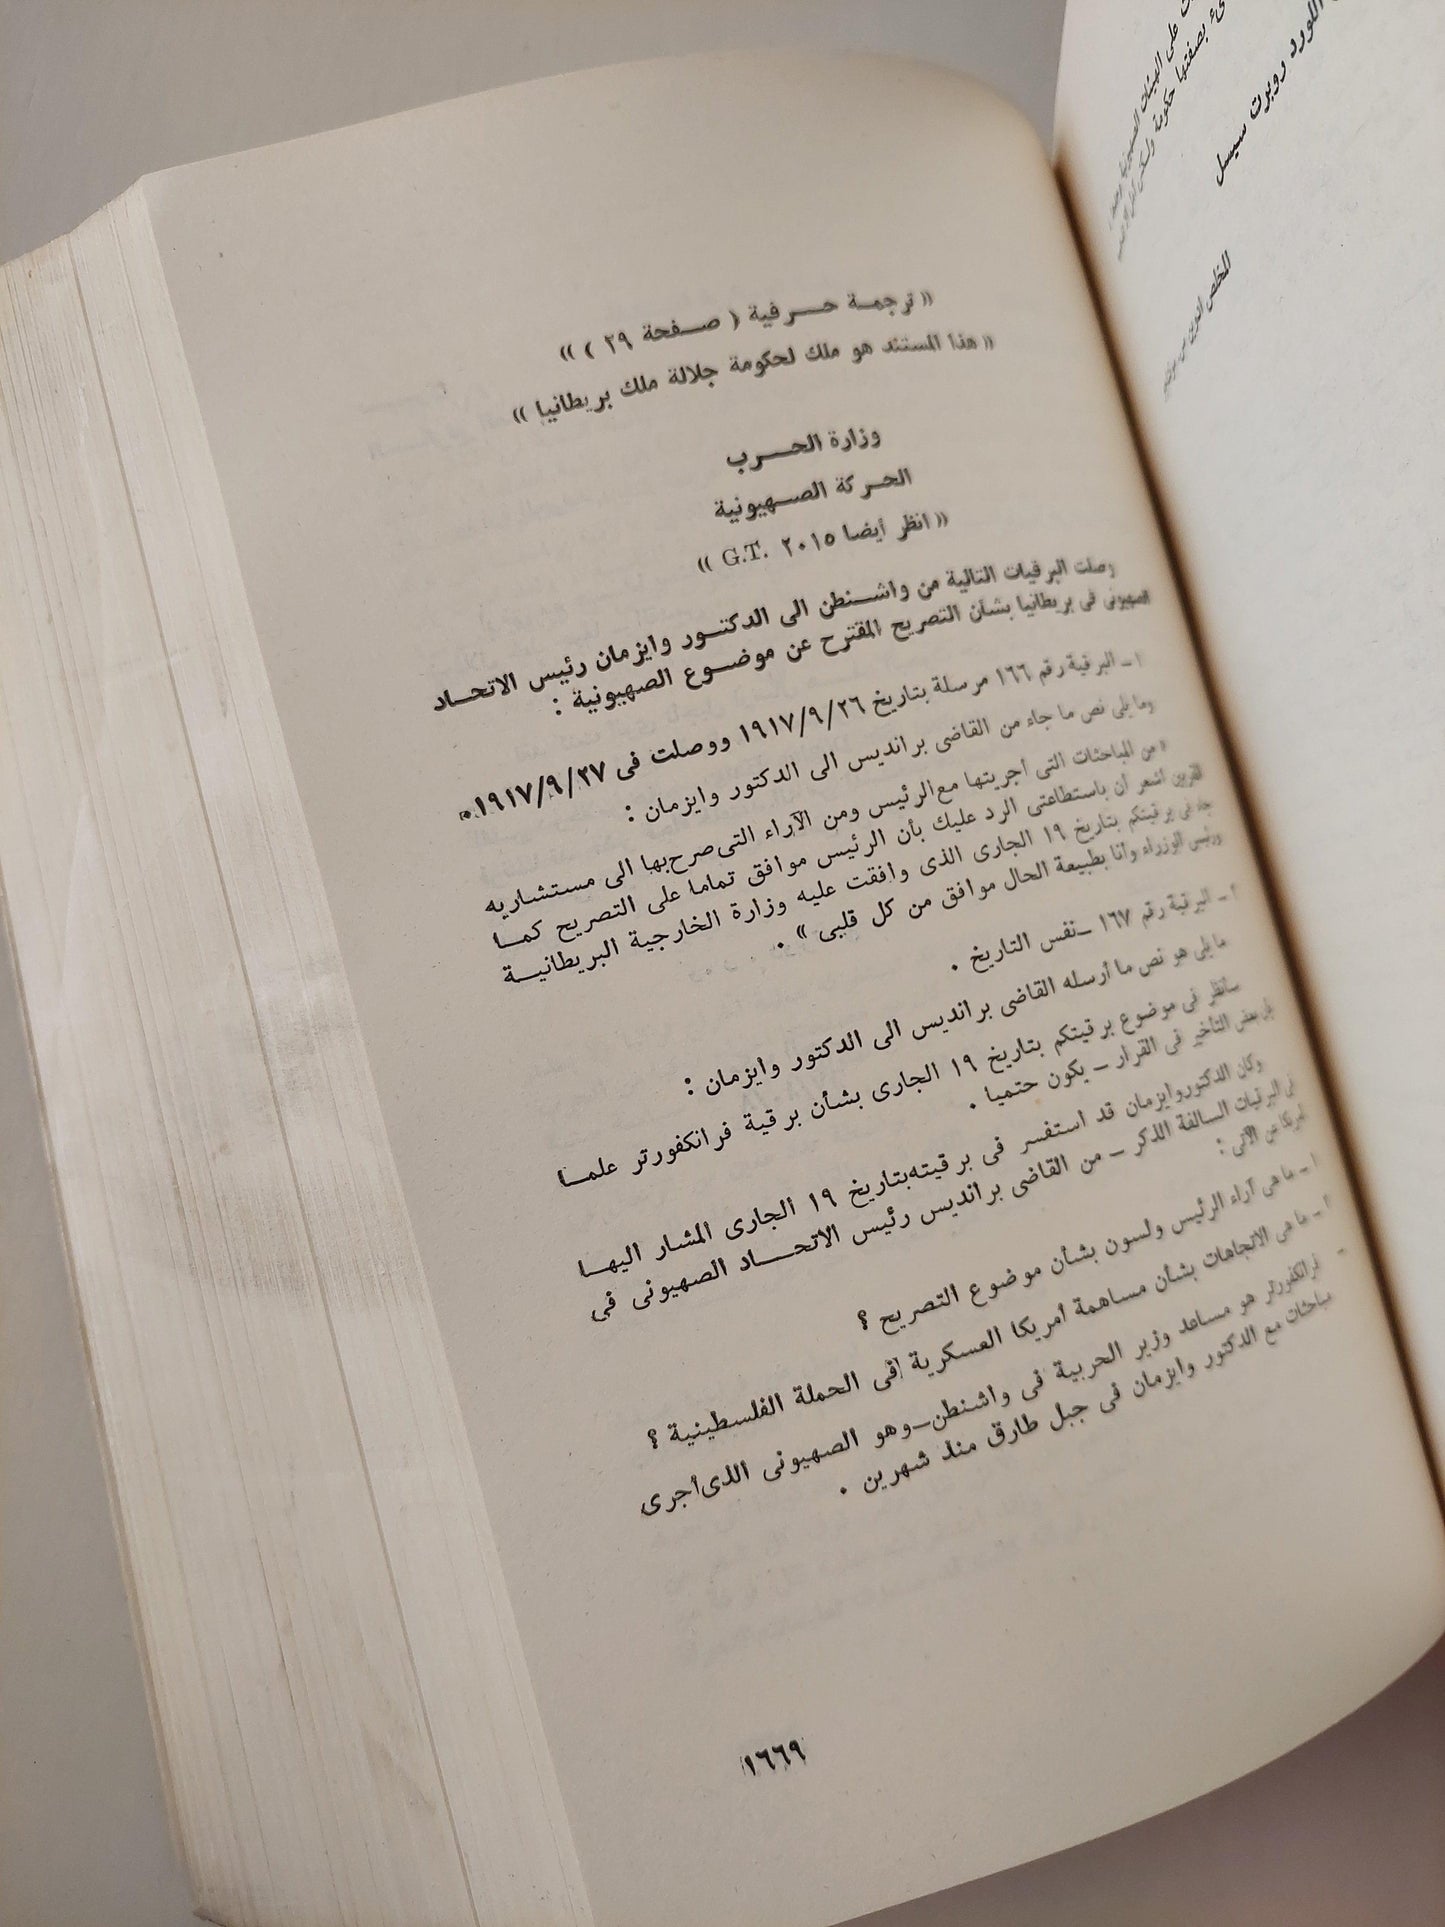 « ترجمة حرفية ( صفحة ٢٩ ) »
« هذا المستند هو ملك لحكومة جلالة ملك بريطانيا »
وزارة الحرب
الحركة الصهيونية
« انظر أيضا ٢٠١٥ .G.T »
وصلت البرقيات التالية من واشنطن الى الدكتور وايزمان رئيس الاتحاد
الصهيونى فى بريطانيا بشأن التصريح المقترح عن موضوع الصهيونية :
١ ـ البرقية رقم ١٦٦ مرسلة بتاريخ ١٩١٧/٩/٢٦ ووصلت فى ١٩١٧/٩/٢٧ .
وما يلى نص ما جاء من القاضى برانديس الى الدكتور وايزمان :
« من المباحثات التى أجريتها مع الرئيس ومن الآراء التى صرح بها الى مستشاريه
القريبين أشعر أن باستطاعتى الرد عليك بأن الرئيس موافق تماما على التصريح كما
جاء فى برقيتكم بتاريخ ١٩ الجارى الذى وافقت عليه وزارة الخارجية البريطانية
ورئيس الوزراء وأنا بطبيعة الحال موافق من كل قلبى » .
٢ ـ البرقية رقم ١٦٧ ـ نفس التاريخ .
ما يلى هو نص ما أرسله القاضى برانديس الى الدكتور وايزمان :
سأنظر فى موضوع برقيتكم بتاريخ ١٩ الجارى بشأن برقية فرانكفورتر علما
بعض التأخير فى القرار ـ يكون حتميا .
وكان الدكتور وايزمان قد استفسر فى برقيته بتاريخ ١٩ الجارى المشار اليها
فى البرقيات السالفة الذكر ـ من القاضى برانديس رئيس الاتحاد الصهيونى فى
أمريكا عن الآتى :
١ ـ ما هى آراء الرئيس ولسون بشأن موضوع التصريح ؟
٢ ـ ما هى الاتجاهات بشأن مساهمة أمريكا العسكرية فى الحملة الفلسطينية ؟
ـ فرانكفورتر هو مساعد وزير الحربية فى واشنطن ـ وهو الصهيونى الذى أجرى
مباحثات مع الدكتور وايزمان فى جبل طارق منذ شهرين .
١٦٦٩
على الهيئات الصهيونية
بصفتها حكومة
اللورد روبرت سيسل